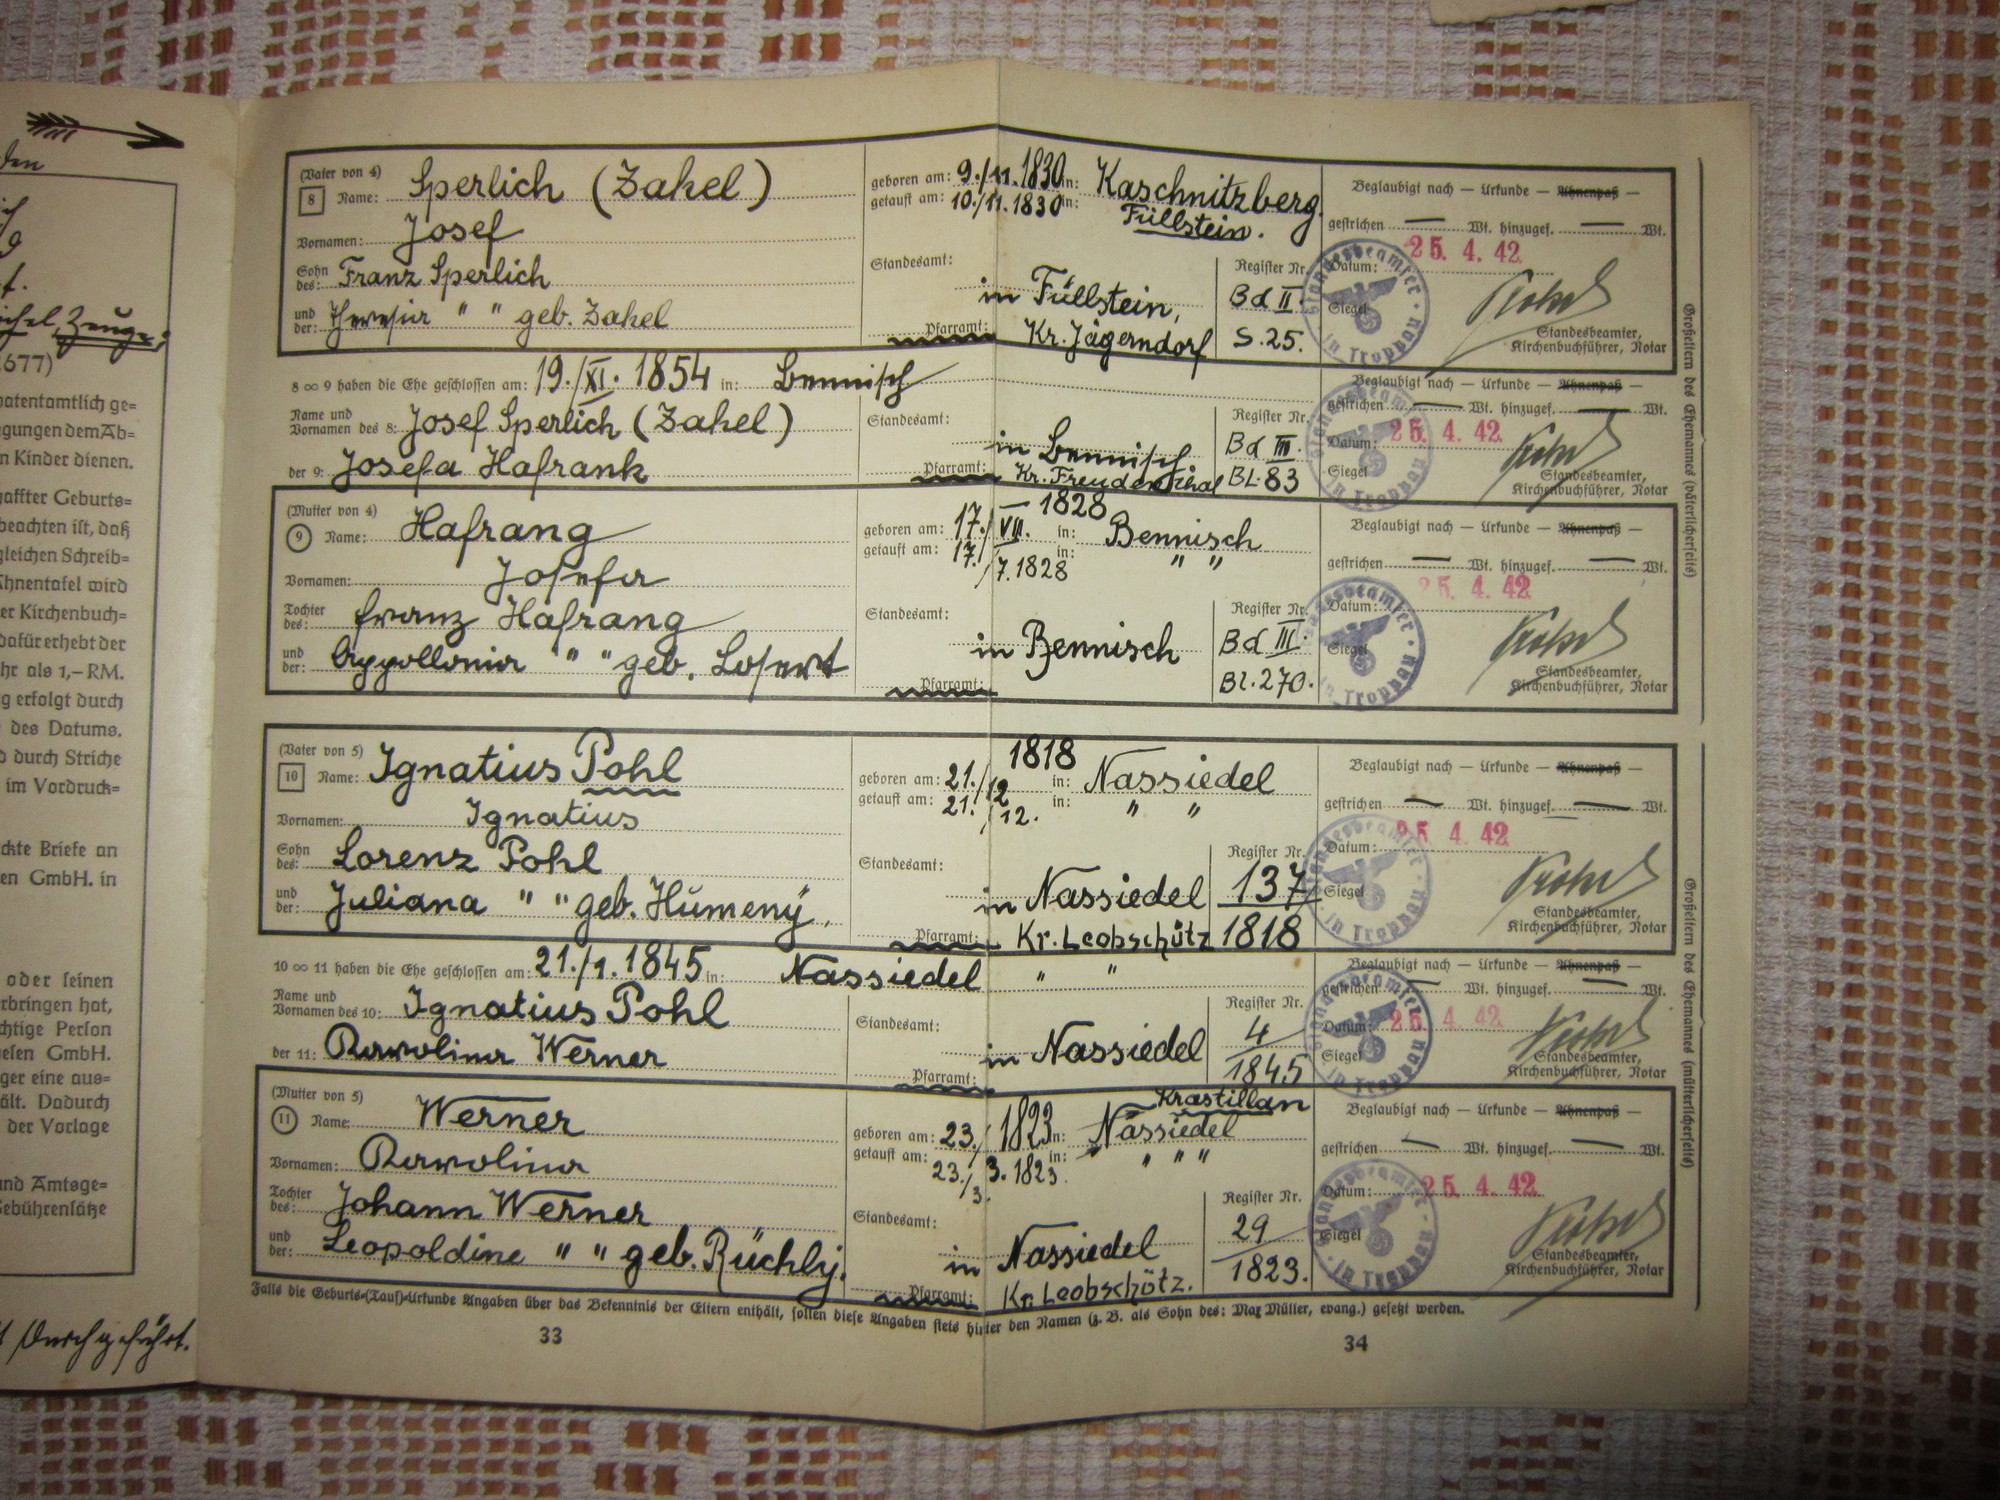 den
t.
Zeuge;
1677)
patentamtlich ge=
egungen dem Ab=
n Kinder dienen.
haffter Geburts=
beachten ist, daß
gleichen Schreib=
Ahnentafel wird
er Kirchenbuch=
dafür erhebt der
hr als 1,– RM.
g erfolgt durch
des Datums.
d durch Striche
im Vordruck=
ckte Briefe an
en GmbH. in
oder seinen
erbringen hat,
chtige Person
esen GmbH.
ger eine aus=
ält. Dadurch
der Vorlage
und Amtsge=
Gebührensätze
durchgeführt.
(Vater von 4)
8 Name: Sperlich (Zahel)
Vornamen: Josef
Sohn des: Franz Sperlich
und der: Theresia " " geb. Zahel
geboren am: 9./11. 1830 in: Kaschnitzberg,
getauft am: 10./11. 1830 in: Füllstein.
Standesamt:
in Füllstein,
Pfarramt: Kr. Jägerndorf
Register Nr.
Bd II.
S. 25.
Beglaubigt nach — Urkunde — Ahnenpaß —
gestrichen — Wt. hinzugef. — Wt.
Datum: 25. 4. 42
Siegel
Standesbeamter · in Troppau ·
Standesbeamter,
Kirchenbuchführer, Notar
8 ∞ 9 haben die Ehe geschlossen am: 19./XI. 1854 in: Bennisch
Name und
Vornamen des 8: Josef Sperlich (Zahel)
der 9: Josefa Hafrank
Standesamt:
in Bennisch
Pfarramt: Kr. Freudenthal
Register Nr.
Bd III.
Bl. 83
Beglaubigt nach — Urkunde — Ahnenpaß —
gestrichen — Wt. hinzugef. — Wt.
Datum: 25. 4. 42
Siegel
Standesbeamter · in Troppau ·
Standesbeamter,
Kirchenbuchführer, Notar
(Mutter von 4)
9 Name: Hafrang
Vornamen: Josefa
Tochter des: Franz Hafrang
und der: Appollonia " " geb. Losert
geboren am: 17./VII. 1828 in: Bennisch
getauft am: 17./7. 1828 in: " "
Standesamt:
in Bennisch
Pfarramt:
Register Nr.
Bd III.
Bl. 270.
Beglaubigt nach — Urkunde — Ahnenpaß —
gestrichen — Wt. hinzugef. — Wt.
Datum: 25. 4. 42
Siegel
Standesbeamter · in Troppau ·
Standesbeamter,
Kirchenbuchführer, Notar
Großeltern des Ehemannes (väterlicherseits)
(Vater von 5)
10 Name: Ignatius Pohl
Vornamen: Ignatius
Sohn des: Lorenz Pohl
und der: Juliana " " geb. Humený.
geboren am: 21./12 1818 in: Nassiedel
getauft am: 21./12. in: " "
Standesamt:
in Nassiedel
Pfarramt: Kr. Leobschütz
Register Nr.
137
1818
Beglaubigt nach — Urkunde — Ahnenpaß —
gestrichen — Wt. hinzugef. — Wt.
Datum: 25. 4. 42
Siegel
Standesbeamter · in Troppau ·
Standesbeamter,
Kirchenbuchführer, Notar
10 ∞ 11 haben die Ehe geschlossen am: 21./1. 1845 in: Nassiedel " "
Name und
Vornamen des 10: Ignatius Pohl
der 11: Karolina Werner
Standesamt:
in Nassiedel
Pfarramt:
Register Nr.
4
1845
Beglaubigt nach — Urkunde — Ahnenpaß —
gestrichen — Wt. hinzugef. — Wt.
Datum: 25. 4. 42
Siegel
Standesbeamter · in Troppau ·
Standesbeamter,
Kirchenbuchführer, Notar
(Mutter von 5)
11 Name: Werner
Vornamen: Karolina
Tochter des: Johann Werner
und der: Leopoldine " " geb. Rüchly.
Krastillan
geboren am: 23./ 1823 in: Nassiedel
getauft am: 23./3. 3. 1823 in: " " "
Standesamt:
in Nassiedel
Pfarramt: Kr. Leobschütz.
Register Nr.
29
1823.
Beglaubigt nach — Urkunde — Ahnenpaß —
gestrichen — Wt. hinzugef. — Wt.
Datum: 25. 4. 42
Siegel
Standesbeamter · in Troppau ·
Standesbeamter,
Kirchenbuchführer, Notar
Großeltern des Ehemannes (mütterlicherseits)
Falls die Geburts=(Tauf)=Urkunde Angaben über das Bekenntnis der Eltern enthält, sollen diese Angaben stets hinter den Namen (z. B. als Sohn des: Max Müller, evang.) gesetzt werden.
33
34